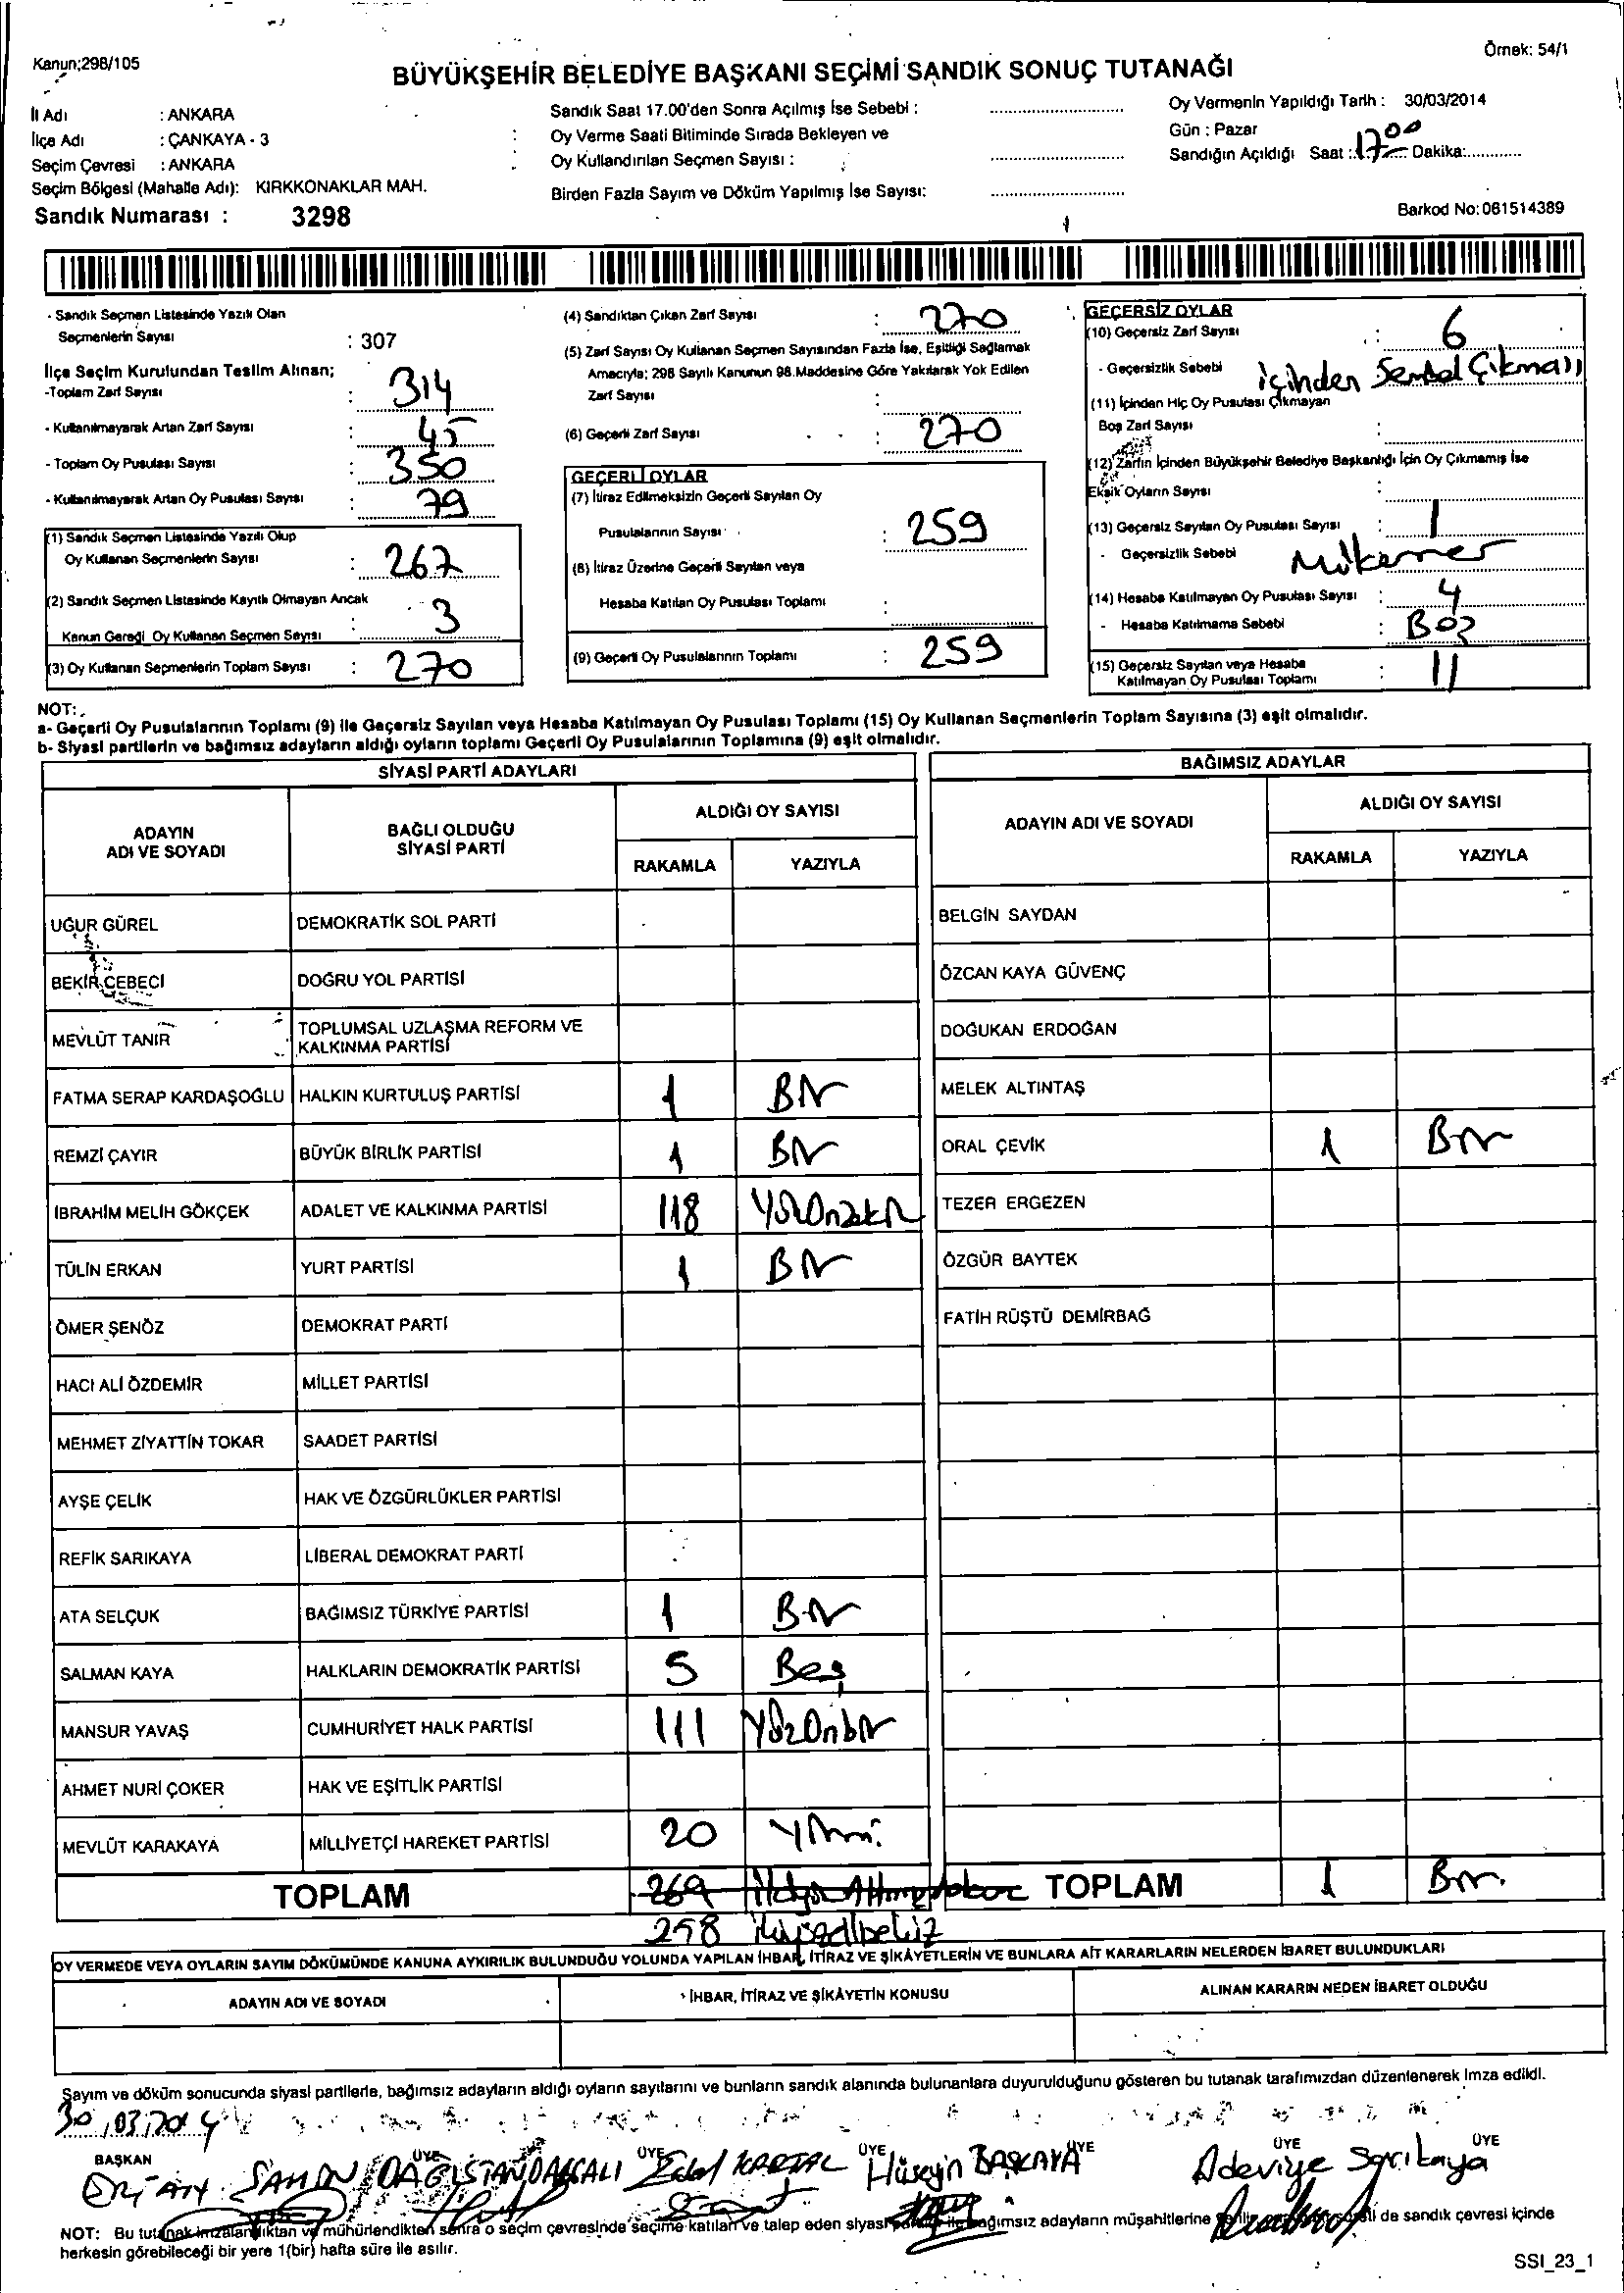 Kanun;298/105
Örnek: 54/1
BÜYÜKŞEHİR BELEDİYE BAŞKANI SEÇİMİ SANDIK SONUÇ TUTANAĞI
İl Adı : ANKARA
İlçe Adı : ÇANKAYA - 3
Seçim Çevresi : ANKARA
Seçim Bölgesi (Mahalle Adı): KIRKKONAKLAR MAH.
Sandık Numarası : 3298
Sandık Saat 17.00'den Sonra Açılmış İse Sebebi :
Oy Verme Saati Bitiminde Sırada Bekleyen ve
Oy Kullandırılan Seçmen Sayısı :
Birden Fazla Sayım ve Döküm Yapılmış İse Sayısı:
Oy Vermenin Yapıldığı Tarih : 30/03/2014
Gün : Pazar
Sandığın Açıldığı Saat : 17 00 Dakika:
Barkod No:061514389
- Sandık Seçmen Listesinde Yazılı Olan
Seçmenlerin Sayısı : 307
İlçe Seçim Kurulundan Teslim Alınan;
-Toplam Zarf Sayısı : 314
- Kullanılmayarak Artan Zarf Sayısı : 45
- Toplam Oy Pusulası Sayısı : 350
- Kullanılmayarak Artan Oy Pusulası Sayısı : 79
(1) Sandık Seçmen Listesinde Yazılı Olup
Oy Kullanan Seçmenlerin Sayısı : 267
(2) Sandık Seçmen Listesinde Kayıtlı Olmayan Ancak
Kanun Gereği Oy Kullanan Seçmen Sayısı : 3
(3) Oy Kullanan Seçmenlerin Toplam Sayısı : 270
(4) Sandıktan Çıkan Zarf Sayısı : 270
(5) Zarf Sayısı Oy Kullanan Seçmen Sayısından Fazla İse, Eşitliği Sağlamak
Amacıyla; 298 Sayılı Kanunun 98.Maddesine Göre Yakılarak Yok Edilen
Zarf Sayısı :
(6) Geçerli Zarf Sayısı : 270
GEÇERLİ OYLAR
(7) İtiraz Edilmeksizin Geçerli Sayılan Oy
Pusulalarının Sayısı : 259
(8) İtiraz Üzerine Geçerli Sayılan veya
Hesaba Katılan Oy Pusulası Toplamı :
(9) Geçerli Oy Pusulalarının Toplamı : 259
GEÇERSİZ OYLAR
(10) Geçersiz Zarf Sayısı : 6
- Geçersizlik Sebebi içinden Çıkması
(11) İçinden Hiç Oy Pusulası Çıkmayan
Boş Zarf Sayısı :
(12) Zarfın İçinden Büyükşehir Belediye Başkanlığı İçin Oy Çıkmamış İse
Eksik Oyların Sayısı :
(13) Geçersiz Sayılan Oy Pusulası Sayısı : 1
- Geçersizlik Sebebi Mükerrer
(14) Hesaba Katılmayan Oy Pusulası Sayısı : 4
- Hesaba Katılmama Sebebi : Boş
(15) Geçersiz Sayılan veya Hesaba
Katılmayan Oy Pusulası Toplamı : 11
NOT:
a- Geçerli Oy Pusulalarının Toplamı (9) ile Geçersiz Sayılan veya Hesaba Katılmayan Oy Pusulası Toplamı (15) Oy Kullanan Seçmenlerin Toplam Sayısına (3) eşit olmalıdır.
b- Siyasi partilerin ve bağımsız adayların aldığı oyların toplamı Geçerli Oy Pusulalarının Toplamına (9) eşit olmalıdır.
SİYASİ PARTİ ADAYLARI
ADAYIN
ADI VE SOYADI
BAĞLI OLDUĞU
SİYASİ PARTİ
ALDIĞI OY SAYISI
RAKAMLA YAZIYLA
UĞUR GÜREL DEMOKRATİK SOL PARTİ
BEKİR CEBECİ DOĞRU YOL PARTİSİ
MEVLÜT TANIR TOPLUMSAL UZLAŞMA REFORM VE
KALKINMA PARTİSİ
FATMA SERAP KARDAŞOĞLU HALKIN KURTULUŞ PARTİSİ 1 Bir
REMZİ ÇAYIR BÜYÜK BİRLİK PARTİSİ 1 Bir
İBRAHİM MELİH GÖKÇEK ADALET VE KALKINMA PARTİSİ 118 Yüzonsekiz
TÜLİN ERKAN YURT PARTİSİ 1 Bir
ÖMER ŞENÖZ DEMOKRAT PARTİ
HACI ALİ ÖZDEMİR MİLLET PARTİSİ
MEHMET ZİYATTİN TOKAR SAADET PARTİSİ
AYŞE ÇELİK HAK VE ÖZGÜRLÜKLER PARTİSİ
REFİK SARIKAYA LİBERAL DEMOKRAT PARTİ
ATA SELÇUK BAĞIMSIZ TÜRKİYE PARTİSİ 1 Bir
SALMAN KAYA HALKLARIN DEMOKRATİK PARTİSİ 5 Beş
MANSUR YAVAŞ CUMHURİYET HALK PARTİSİ 111 Yüzonbir
AHMET NURİ ÇOKER HAK VE EŞİTLİK PARTİSİ
MEVLÜT KARAKAYA MİLLİYETÇİ HAREKET PARTİSİ 20 Yirmi
TOPLAM 269
258 ikiyüzellisekiz
BAĞIMSIZ ADAYLAR
ADAYIN ADI VE SOYADI
ALDIĞI OY SAYISI
RAKAMLA YAZIYLA
BELGİN SAYDAN
ÖZCAN KAYA GÜVENÇ
DOĞUKAN ERDOĞAN
MELEK ALTINTAŞ
ORAL ÇEVİK 1 Bir
TEZER ERGEZEN
ÖZGÜR BAYTEK
FATİH RÜŞTÜ DEMİRBAĞ
TOPLAM 1 Bir
OY VERMEDE VEYA OYLARIN SAYIM DÖKÜMÜNDE KANUNA AYKIRILIK BULUNDUĞU YOLUNDA YAPILAN İHBAR, İTİRAZ VE ŞİKÂYETLERİN VE BUNLARA AİT KARARLARIN NELERDEN İBARET BULUNDUKLARI
ADAYIN ADI VE SOYADI
İHBAR, İTİRAZ VE ŞİKÂYETİN KONUSU
ALINAN KARARIN NEDEN İBARET OLDUĞU
Sayım ve döküm sonucunda siyasi partilerle, bağımsız adayların aldığı oyların sayılarını ve bunların sandık alanında bulunanlara duyurulduğunu gösteren bu tutanak tarafımızdan düzenlenerek imza edildi.
30.03.2014
BAŞKAN ÜYE ÜYE ÜYE ÜYE ÜYE ÜYE
KARTAL Hüseyin BAŞKAYA Adeviye Sarıkaya
NOT: Bu tutanak imzalandıktan ve mühürlendikten sonra o seçim çevresinde seçime katılan ve talep eden siyasi ile bağımsız adayların müşahitlerine de sandık çevresi içinde
herkesin görebileceği bir yere 1(bir) hafta süre ile asılır.
SSI_23_1